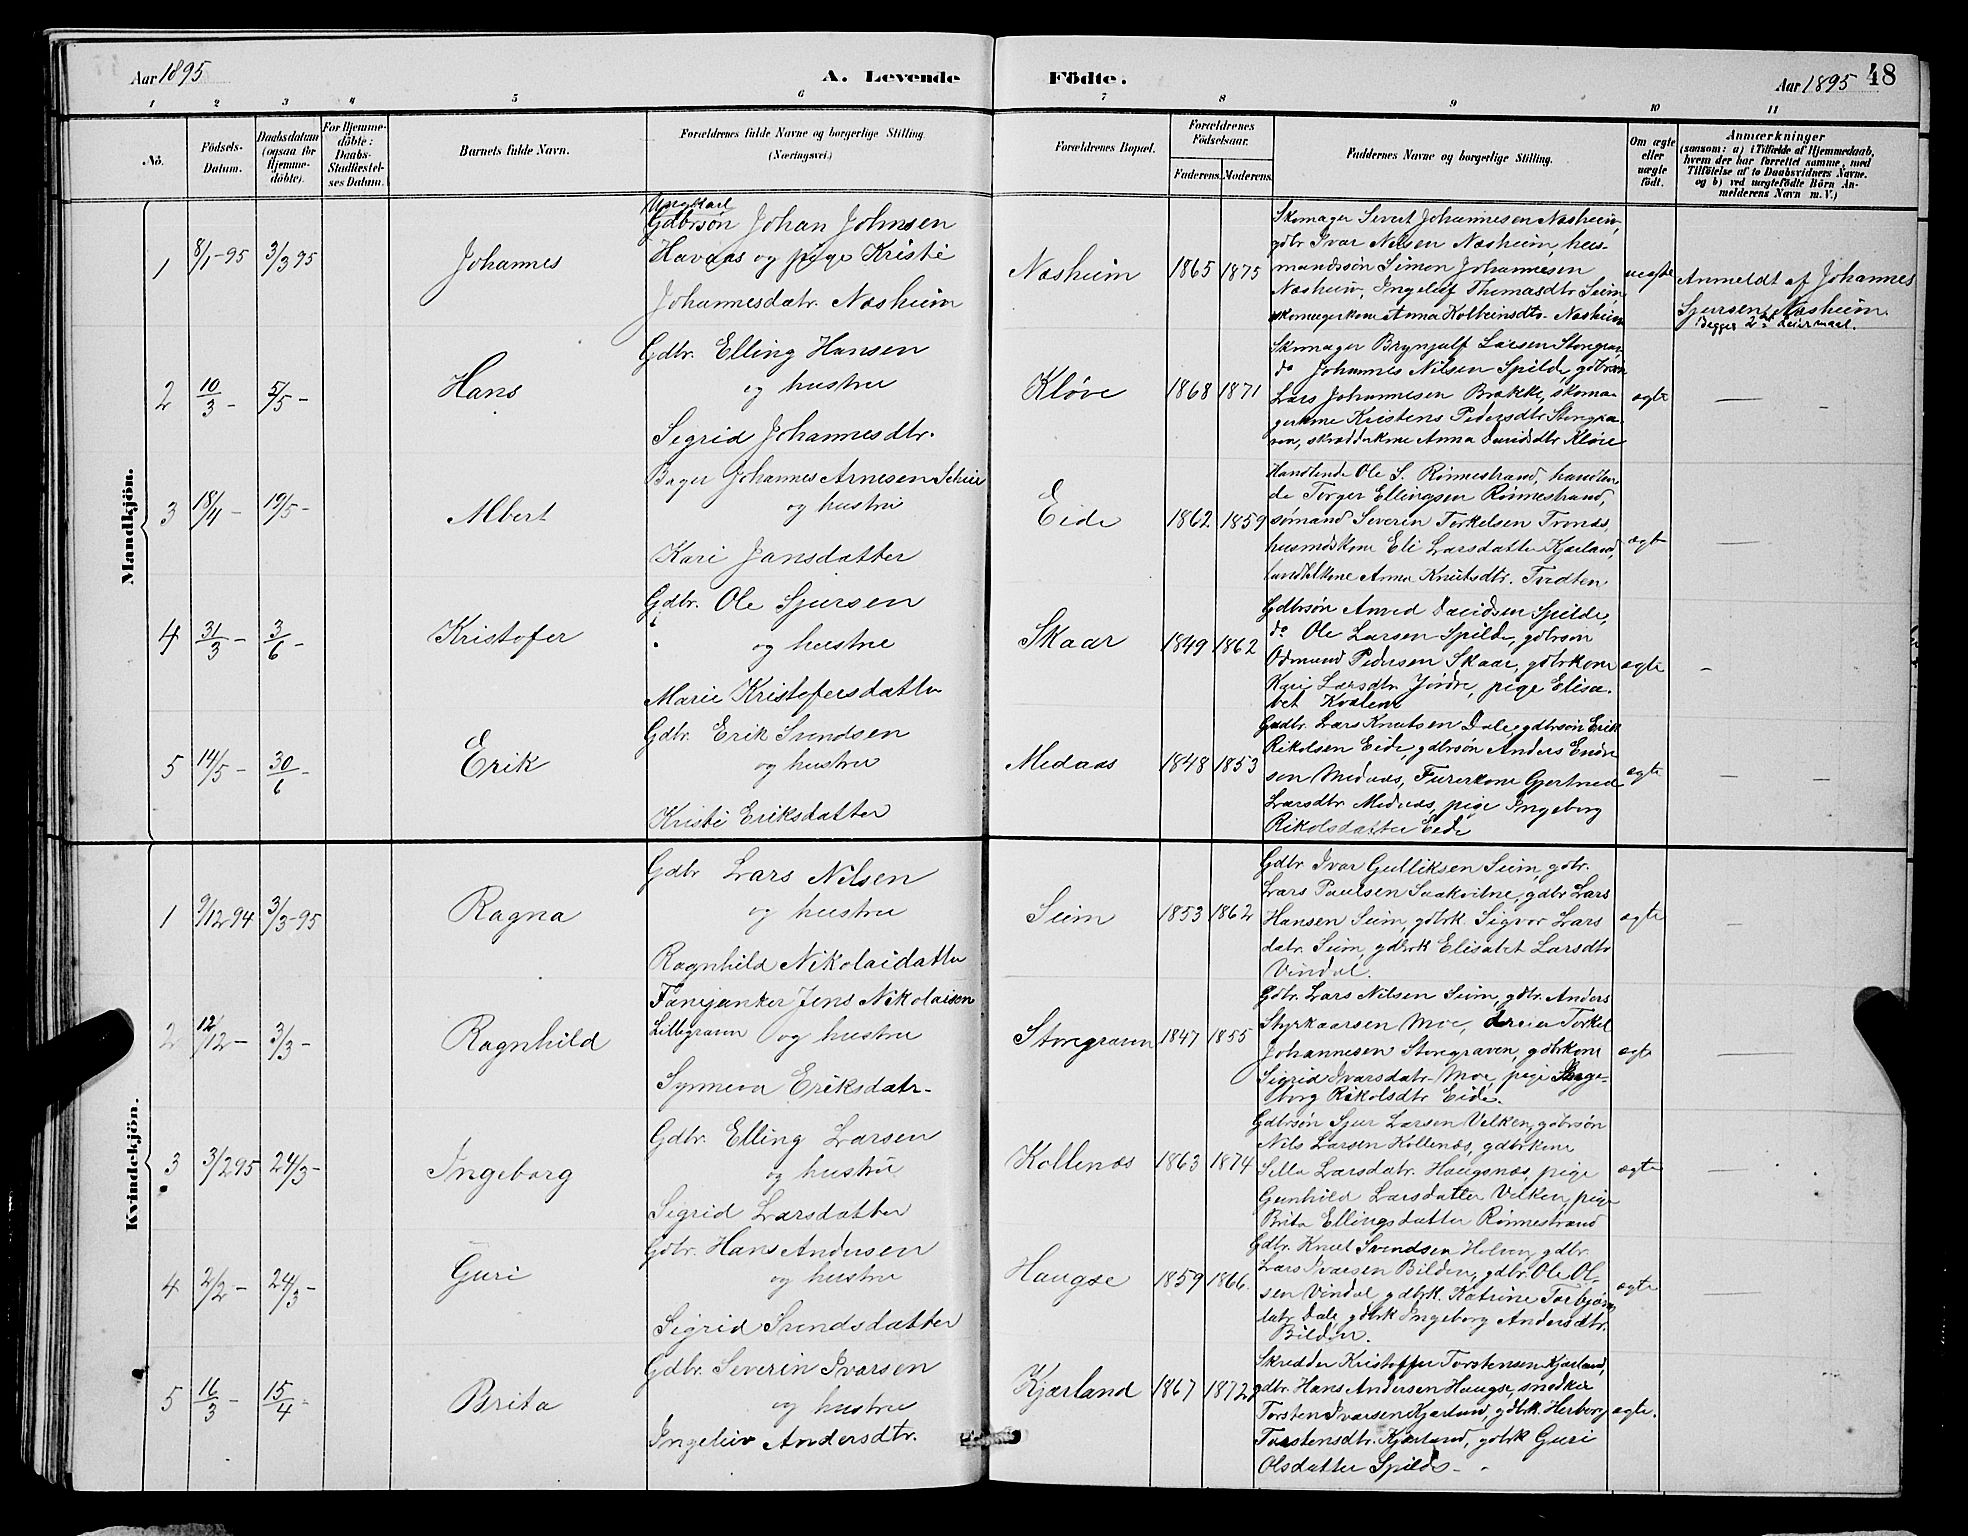 Aar 1895 A. Levende Födte. Aar 1895 48
1 2 3 4 5 6 7 8 9 10 11
No.
Födsels-Datum.
Daabsdatum (ogsaa for Hjemme-döbte).
For Hjemme-döbte: Daabs-Stadfæstel-ses Datum.
Barnets fulde Navn.
Forældrenes fulde Navne og borgerlige Stilling.
(Næringsvei.)
Forældrenes Bopæl.
Forældrenes Födselsaar.
Faderens. Moderens.
Faddernes Navne og borgerlige Stilling.
Om ægte eller uægte födt.
Anmærkninger
(saasom: a) i Tilfælde af Hjemmedaab,
hvem der har forrettet samme, med
Tilföielse af to Daabsvidners Navne.
og b) ved uægtefödte Börn An-
melderens Navn m. V.)
Mandkjön.
1 8/1-95 3/3 95 Johannes
Ungkarl
Gdbrsøn Johan Johnsen
Havaas og pige Kristi
Johannesdatr. Næsheim
Næsheim 1865 1875
Skomager Severt Johannesen Næsheim,
gdbr Ivar Nelsen Næsheim, hus-
mandssøn Simon Johannesen
Næsheim, Ingeleif Thomasdtr Seim
skomagerkone Anna Kolbeinsdtr. Næsheim
uægte
Anmeldt af Johannes
Sjursen Næsheim.
Begges 2det Leiermaal.
2 10/3 - 5/5 - Hans
Gdbr. Elling Hansen
og hustru
Sigrid Johannesdtr.
Kløve 1868 1871
Skomager Brynjulf Larsen Storgra,
do Johannes Nilsen Spilde, gdbrsøn
Lars Johannesen Brække, skoma-
gerkone Kristens Pedersdtr Storgra-
ven, skrædderkone Anna Davidsdtr Kløve
ægte
3 18/4 - 19/5 - Albert
Bager Johannes Arnesen
og hustru
Kari Jansdatter
Eide 1862 1859
Handlende Ole S. Rønnestrand, handlen
de Torger Ellingsen Rønnestrand,
sømand Severin Torkelsen Trones,
husmdskone Eli Larsdatter Kjærland,
landhdlkone Anna Knutsdtr. Tvedten
ægte
4 31/3 - 3/6 - Kristofer
Gdbr. Ole Sjursen
og hustru
Marie Kristofersdatter
Skaar 1849 1862
Gdbrsøn Amed Davidsen Spilde,
do Ole Larsen Spilde, gdbrsøn
Odmund Pedersen Skaar, gdbrkone
Kari Larsdtr Jördre, pige Elisa-
bet Kvalem
ægte
5 14/5 - 30/6 - Erik
Gdbr. Erik Svendsen
og hustru
Kristi Eriksdatter
Medaas 1848 1853
Gadbr. Lars Knutsen Dale, gdbrsøn Erik
Rikolsen Eide, gdbrsøn Anders Endre
sen Medaas, Furerkone Gjertrud
Larsdtr. Medaas, pige Ingeborg
Rikolsdatter Eide
ægte
Kvindekjön.
1 9/12 94 3/3-95 Ragna
Gdbr Lars Nilsen
og hustru
Ragnhild Nikolaidatter
Seim 1853 1862
Gdbr Ivar Gulliksen Seim, gdbr.
Lars Paulsen Saakvitne, gdbr Lars
Hansen Seim, gdbrk. Sigvor Lars
datr. Seim, gdbrk Elisabet Larsdtr
Vindal.
ægte
2 12/12 - 3/3 - Ragnhild
Fanejunker Jens Nikolaisen
Lillegraven og hustru
Synneva Eriksdatr.
Storegraven 1847 1855
Gdbr. Lars Nilsen Seim, gdbr. Anders
Styrkaarsen Moe, dreier Torkel
Johannesen Storegraven, gdbrkone
Sigrid Ivarsdatr. Moe, pige Inge-
borg Rikolsdtr Eide.
ægte
3 3/2 95 24/3 - Ingeborg
Gdbr. Elling Larsen
og hustru
Sigrid Larsdatter
Kollenæs 1863 1874
Gdbrsøn Sjur Larsen Velken, gdbrsøn
Nils Larsen Kollenæs, gdbrkone
Sella Larsdatr. Haugsnæs, pige
Gunhild Larsdatter Velken, pige
Brita Ellingsdatter Rønnestrand
ægte
4 2/2 - 24/3 - Guri
Gdbr. Hans Andersen
og hustru
Sigrid Svendsdatter
Haugse 1859 1866.
Gdbr. Knut Svendsen Holven, gdbr.
Lars Ivarsen Bilden, gdbr. Ole Ol-
sen Vindal gdbrk. Katrine Torbjørns
datr. Dale, gdbrk Ingeborg Andersdtr.
Bilden.
ægte
5 16/3 - 15/4 - Brita
Gdbr. Severin Ivarsen
og hustru
Ingeleiv Andersdtr.
Kjærland 1867 1872
Skredder Kristoffer Torstensen Kjærland,
gdbr. Hans Andersen Haugse, snedker
Torsten Ivarsen Kjærland, gdbrk. Herborg
Torstensdtr. Kjærland, gdbrk Guri
Olsdatter Spilde -
ægte.